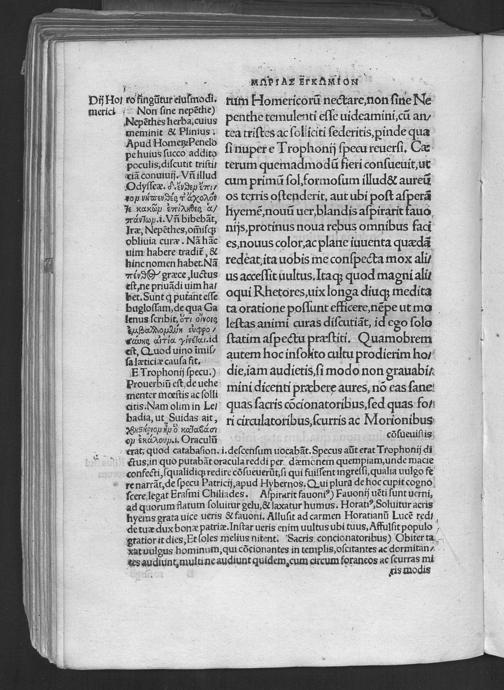 ΜΩΡΙΑΣ ΕΓΚΩΜΙΟΝ
Dij Ho⸗
merici
ro fingūtur eiusmodi.
Non sine nepēthe)
Nepēthes herba, cuius
meminit & Plinius.
Apud Homeꝝ Penelo
pe huius succo addito
poculis, discutit tristi⸗
ciā conuiuij. Vñ illud
Odysseæ.
i. Vñ bibebāt,
Iræ, Nepēthes, omīsq;
obliuia curæ. Nā hāc
uim habere tradūt, &
hinc nomen habet. Nā
græce, luctus
est, ne priuādi uim ha⸗
bet. Sunt q putant esse
buglossam, de qua Ga
lenus scribit, ὅτι οἴνοις
ἐμβαλλομένη εὐφρο⸗
σύνης αἰτία γίνεται. id
est, Quod uino imis⸗
sa læticiæ causa fit.
E Trophonij specu.)
Prouerbiū est, de uehe
menter mœstis ac solli
citis. Nam olim in Le⸗
badia, ut Suidas ait,
ὃ καταβάσι⸗
ομ ἐκάλουμ. i. Oraculū
rum Homericorū nectare, non sine Ne
penthe temulenti esse uideamini, cū an⸗
tea tristes ac solliciti sederitis, pinde qua
si nuper e Trophonij specu reuersi. Cæ
terum quemadmodū fieri consueuit, ut
cum primū sol, formosum illud & aureū
os terris ostenderit, aut ubi post asperā
hyemē, nouū uer, blandis aspirarit fauo
nijs, protinus noua rebus omnibus faci
es, nouus color, ac plane iuuenta quædā
redeāt, ita uobis me conspecta mox ali⸗
us accessit uultus, Itaq; quod magni ali
oqui Rhetores, uix longa diuq; medita
ta oratione possunt efficere, nēpe ut mo
lestas animi curas discutiāt, id ego solo
statim aspectu præstiti. Quamobrem
autem hoc insolito cultu prodierim ho⸗
die, iam audietis, si modo non grauabi⸗
mini dicenti præbere aures, nō eas sane
quas sacris cōcionatoribus, sed quas fo⸗
ri circulatoribus, scurris ac Morionibus
cōsueuistis
erat, quod catabasion. i. descensum uocabāt. Specus aūt erat Trophonij di
ctus, in quo putabāt oracula reddi per dæmonem quempiam, unde macie
confecti, squalidiq; redire cōsueuerūt, si qui fuissent ingressi, qualia uulgo fe
re narrāt, de specu Patricij, apud Hybernos. Qui plura de hoc cupit cogno
scere, legat Erasmi Chiliades. Aspirarit fauonijs) Fauonij uēti sunt uerni,
ad quorum flatum soluitur gelu, & laxatur humus. Horatius, Soluitur acris
hyems grata uice ueris & fauoni. Allusit ad carmen Horatianū Lucē redde
de tuæ dux bonæ patriæ. Instar ueris enim uultus ubi tuus, Affulsit populo
gratior it dies, Et soles melius nitent. Sacris concionatoribus) Obiter ta
xat uulgus hominum, qui cōcionantes in templis, oscitantes ac dormitan⸗
tes audiunt, multi ne audiunt quidem, cum circum foraneos ac scurras mi
ris modis